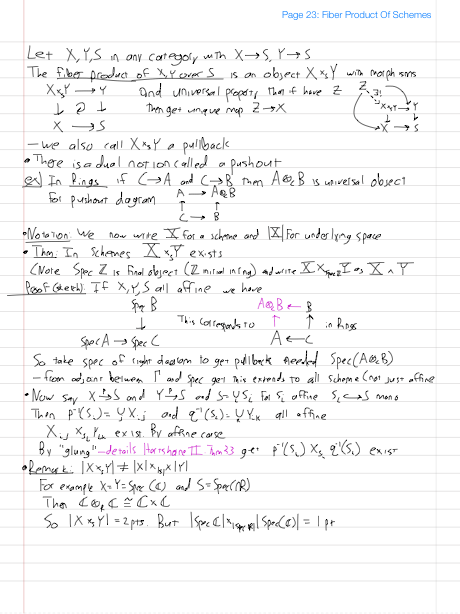 Page 23: Fiber Product Of Schemes
Let X,Y,S in any category with X→S, Y→S
The fiber product of X,Y over S is an object X×ₛY with morphisms
X×ₛY → Y And universal property that if have Z Z ∃!
↓ ↓ Then get unique map Z→X X×ₛY → Y
X → S X → S
– we also call X×ₛY a pullback
• There is a dual notion called a pushout
ex) In Rings if C→A and C→B then A⊗_C B is universal object
for pushout diagram A → A⊗_C B
↑ ↑
C → B
• Notation: We now write X for a scheme and |X| for underlying space
• Thm: In Schemes X×ₛY exists
(Note Spec Z is final object (Z initial in ring) and write X×_{Spec Z}Y as X × Y
Proof (sketch): If X,Y,S all affine we have
Spec B A⊗_C B ← B
↓ This corresponds to ↑ ↑ in Rings
Spec A → Spec C A ← C
So take spec of right diagram to get pullback needed Spec(A⊗_C B)
– from adjoint between Γ and Spec get this extends to all scheme (not just affine
• Now say X →p S and Y →q S and S=∪Sᵢ for Sᵢ affine Sᵢ↪S mono
Then p⁻¹(Sᵢ)=∪Xᵢⱼ and q⁻¹(Sᵢ)=∪Yᵢₖ all affine
Xᵢⱼ ×_{Sᵢ} Yᵢₖ exist By affine case
By "gluing" – details Hartshorne II Thm 3.3 get p⁻¹(Sᵢ) ×ₛ q⁻¹(Sᵢ) exist
• Remark: |X×ₛY| ≠ |X|×_{|S|}|Y|
For example X=Y=Spec(C) and S=Spec(R)
Then C⊗_R C ≅ C×C
So |X×ₛY| = 2 pts. But |Spec C|×_{|Spec R|}|Spec(C)| = 1 pt